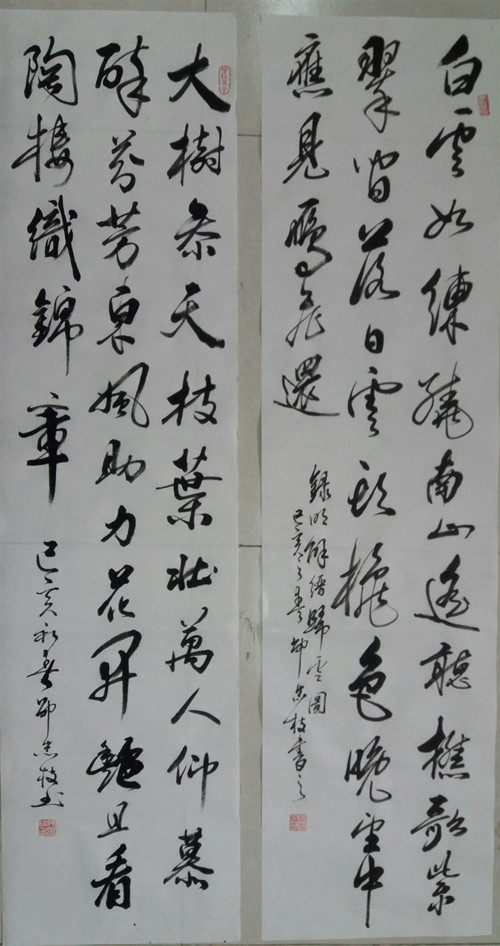 白雲如練繞南山遙聽樵歌紫
翠間落日雲頭色晚空中
應見鶴飛還
錄明解縉歸雲圖
己亥之春邵忠枝書之
大樹參天枝葉壯萬人仰慕
醉芬芳東風助力花開艷且看
陶樓織錦章
己亥初春邵忠枝書